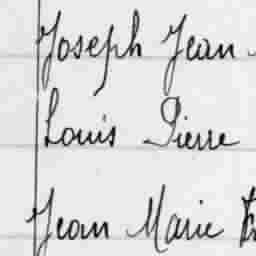 Joseph Jean
Louis Pierre
Jean Marie